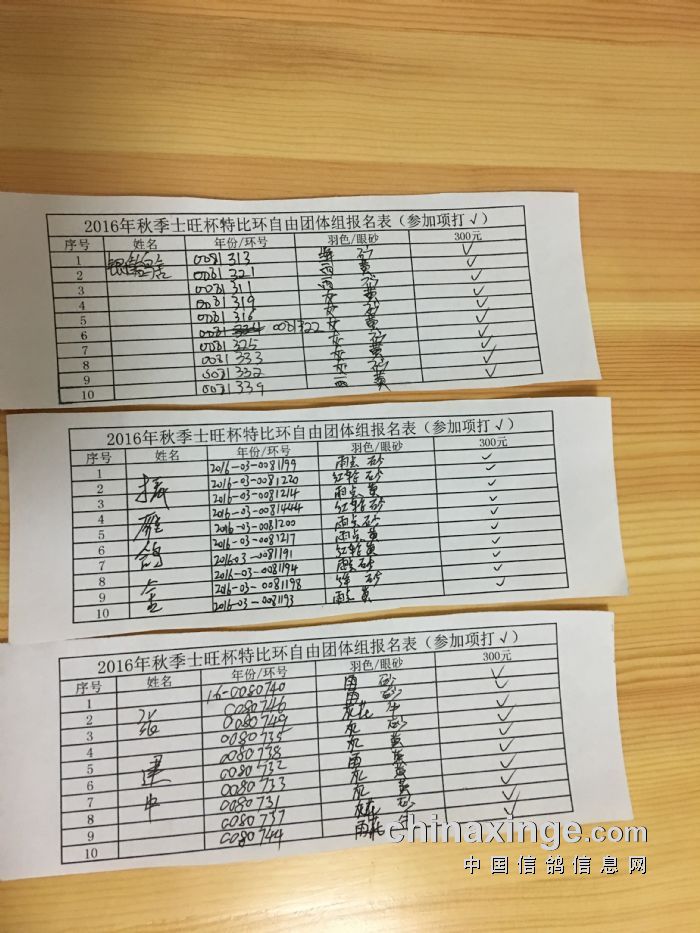 2016年秋季士旺杯特比环自由团体组报名表（参加项打√）
序号 姓名 年份/环号 羽色/眼砂 300元
1 0081313 砂 √
2 0081221 黄 √
3 0081311 √
4 0081319 黄 √
5 0081316 √
6 0081 0081322 黄 √
7 0081325 砂 √
8 0081333 黄 √
9 0081332 砂 √
10 0081339 黄 √
2016年秋季士旺杯特比环自由团体组报名表（参加项打√）
序号 姓名 年份/环号 羽色/眼砂 300元
1 2016-03-0081199 雨点 砂 √
2 2016-03-0081220 红轮 砂 √
3 2016-03-0081214 雨点 黄 √
4 2016-03-0081444 红轮 砂 √
5 雁 2016-03-0081200 雨点 砂 √
6 2016-03-0081217 雨点 黄 √
7 鸽 2016-03-0081191 红轮 黄 √
8 2016-03-0081194 雨点 砂 √
9 2016-03-0081198 砂 √
10 2016-03-0081193 雨点 黄 √
2016年秋季士旺杯特比环自由团体组报名表（参加项打√）
序号 姓名 年份/环号 羽色/眼砂 300元
1 16-0080740 雨 砂 √
2 张 0080746 雨 砂 √
3 0080749 灰花 牛 √
4 0080735 灰 砂 √
5 建 0080738 灰 黄 √
6 0080732 雨 黄 √
7 中 0080733 灰 黄 √
8 0080731 灰 黄 √
9 0080737 灰花 砂 √
10 0080744 雨花 牛 √
chinaxinge.com
中国信鸽信息网